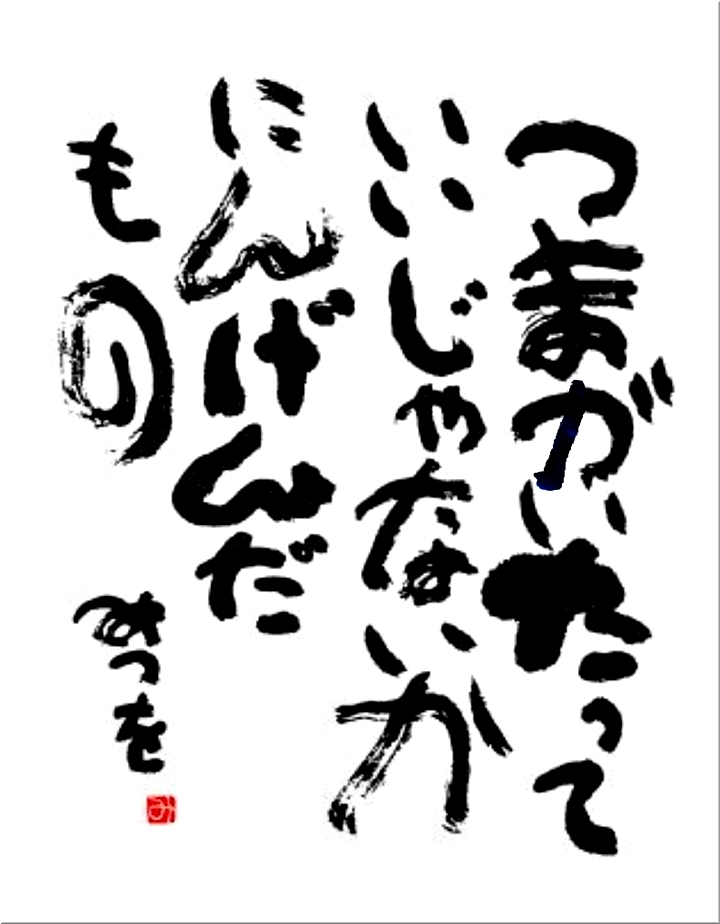 つまがいたって
いいじゃないか
にんげんだ
もの
みつを
み